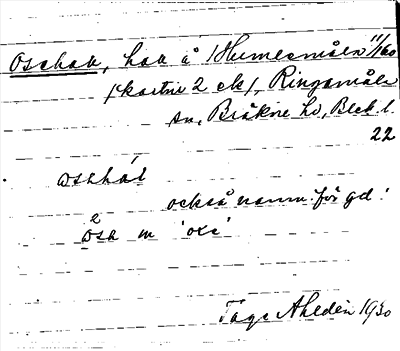 Oschak, hak å Humlesmåla 11/160
(kartin 2 ek), Ringamåla
sn, Bräkne hd, Blek. l.
22
oshhál
också namn för gd.
òsh m 'oxe'
Tage Ahldén 1930